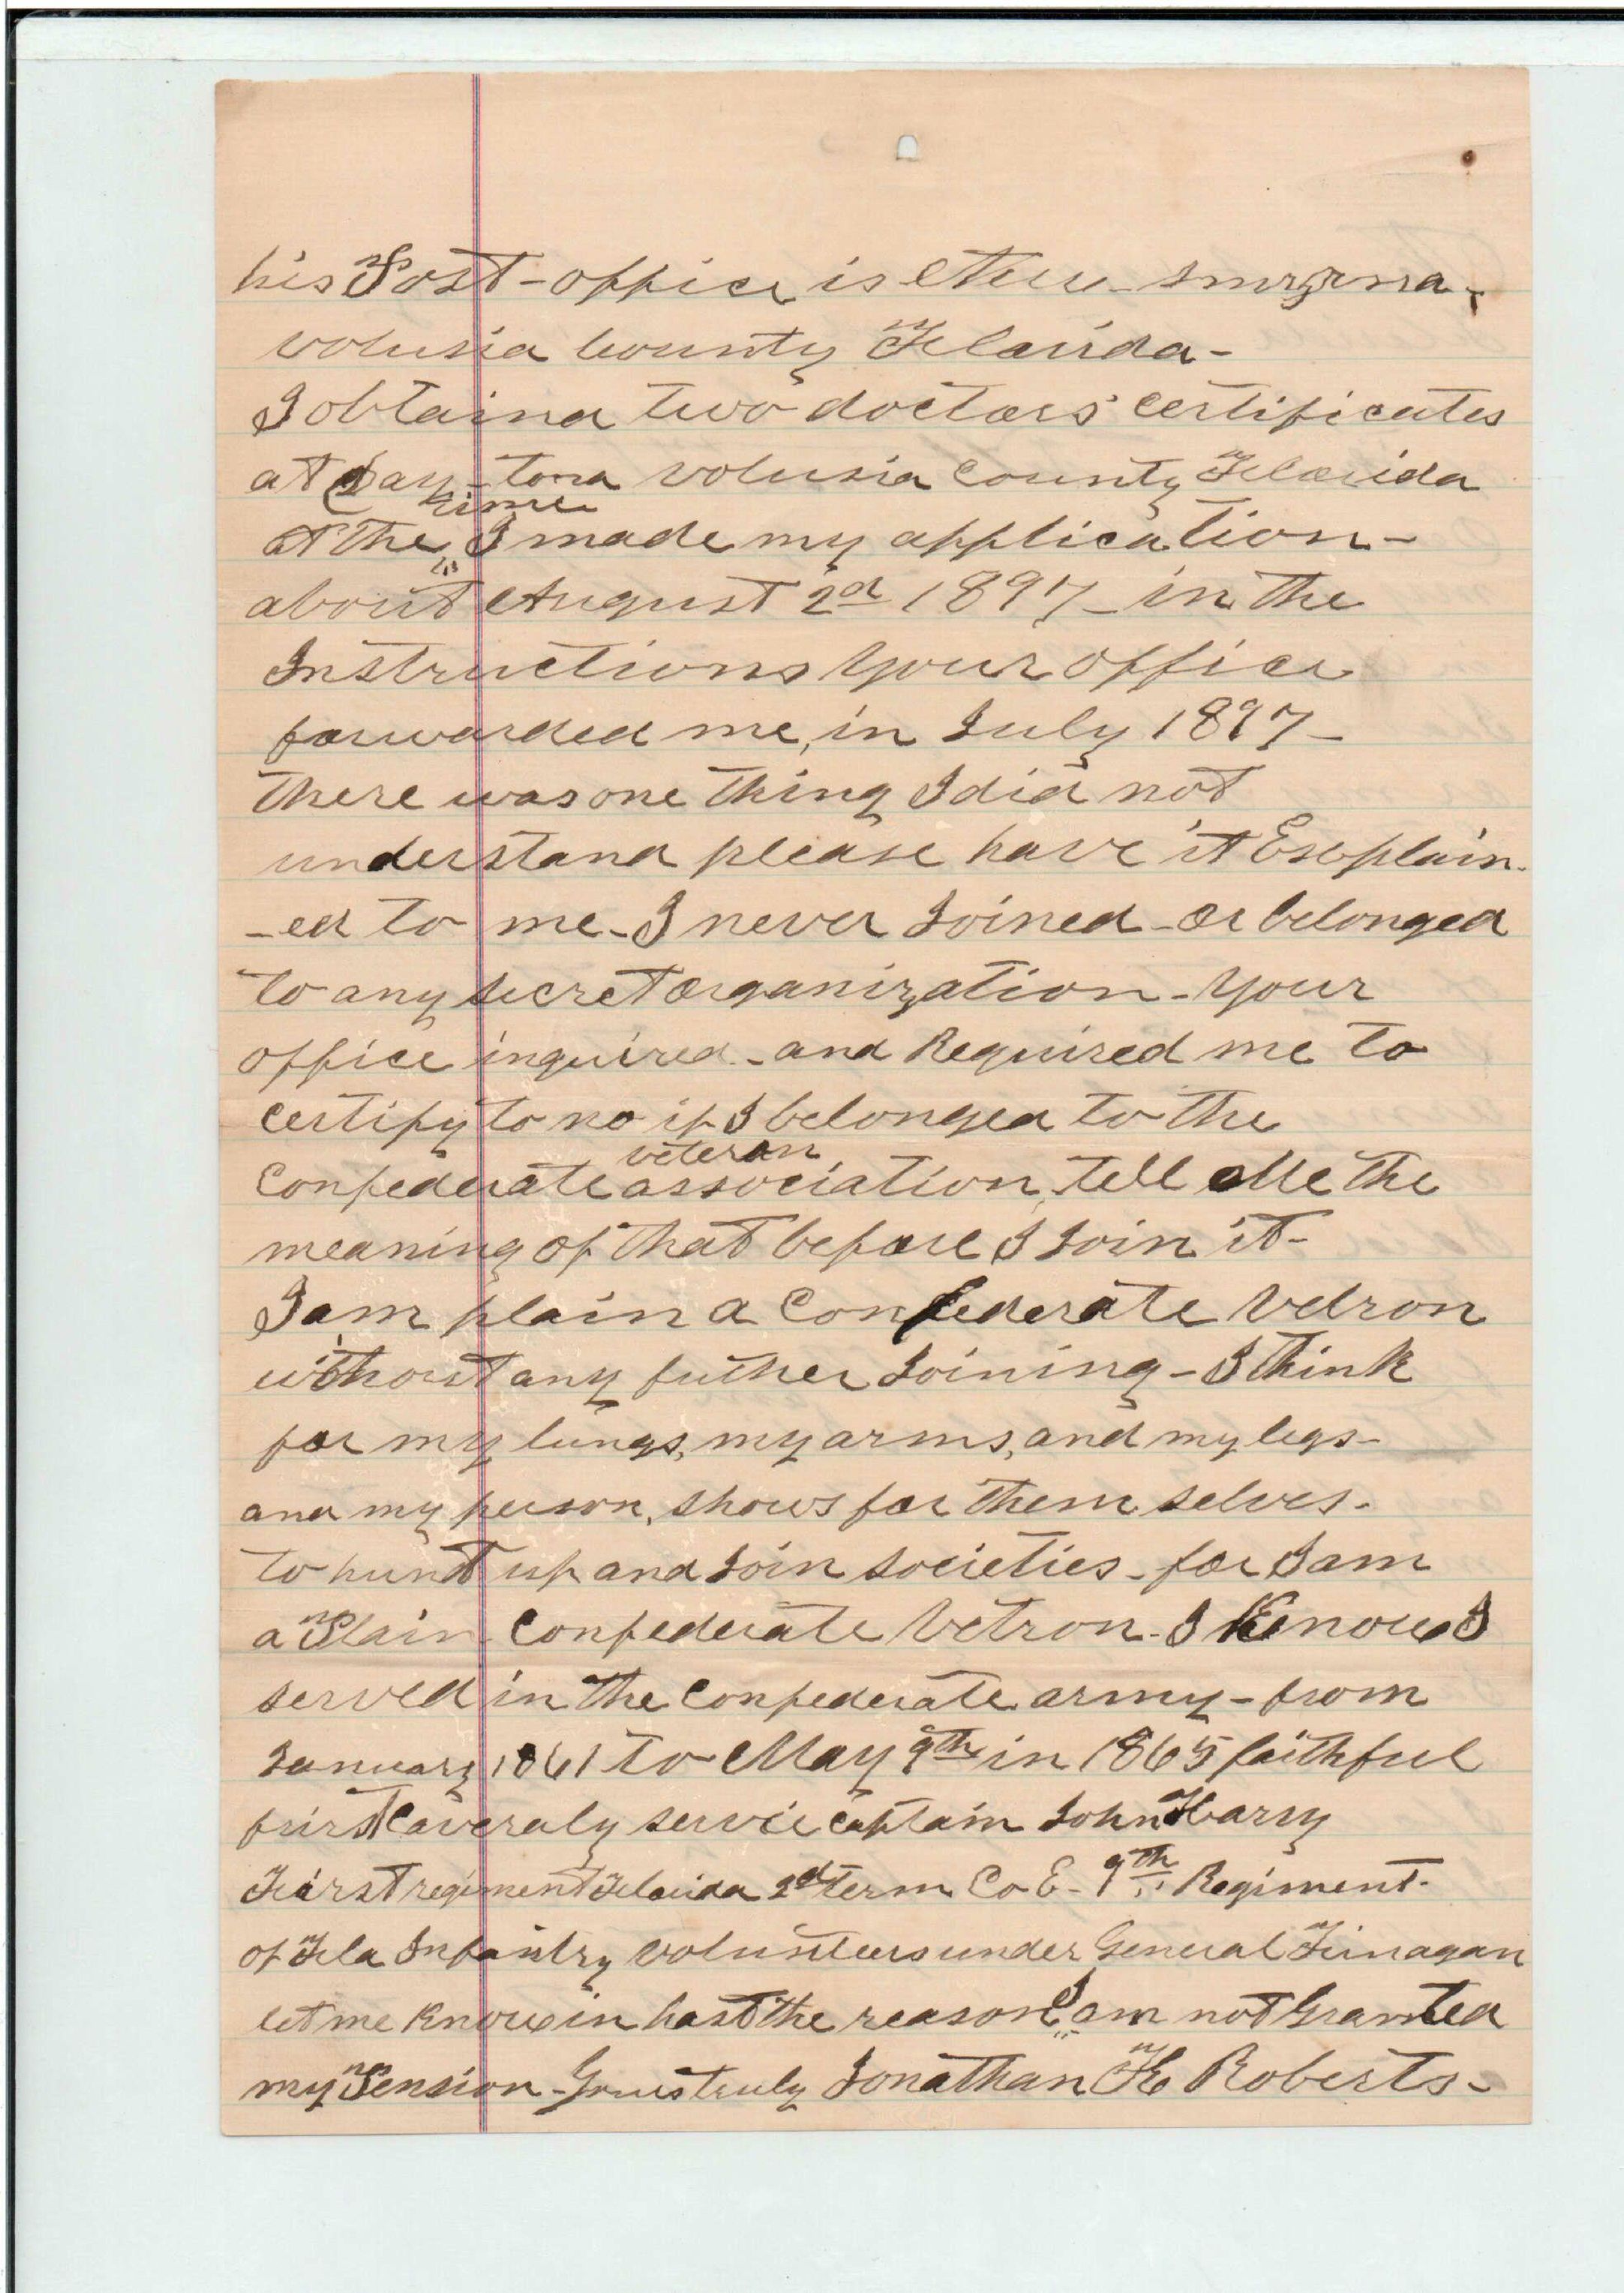 his Post-office is New Smyrna,
Volusia County Florida-
I obtaind two doctors certificates
at Day-tona Volusia County Florida
at the time I made my application-
about August 2d 1897- in the
Instructions your office
forwarded me, in July 1897-
there was one thing I did not
understand please have it Explain-
-ed to me- I never Joined- or belonged
to any secret organization- your
office inquired- and Required me to
certify to no if I belonged to the
Confederate veteran association, tell Me the
meaning of that before I Join it-
I am plain a Confederate vetron
without any futher Joining- I think
for my lungs, my arms, and my legs-
and my person, shows for them selves-
to hunt up and Join societies- for I am
a Plain- Confederate Vetron- I Know I
served in the Confederate army- from
January 1861 to May 9th in 1865 faithful
furst Caveraly servie Captain John Harry
First regiment Florida 2d term Co E- 9th Regiment-
of Fla Infantry volunteers under General Finnagan
let me Know in hast the reason I am not Granted
my Pension- Yours truly Jonathan H Roberts-